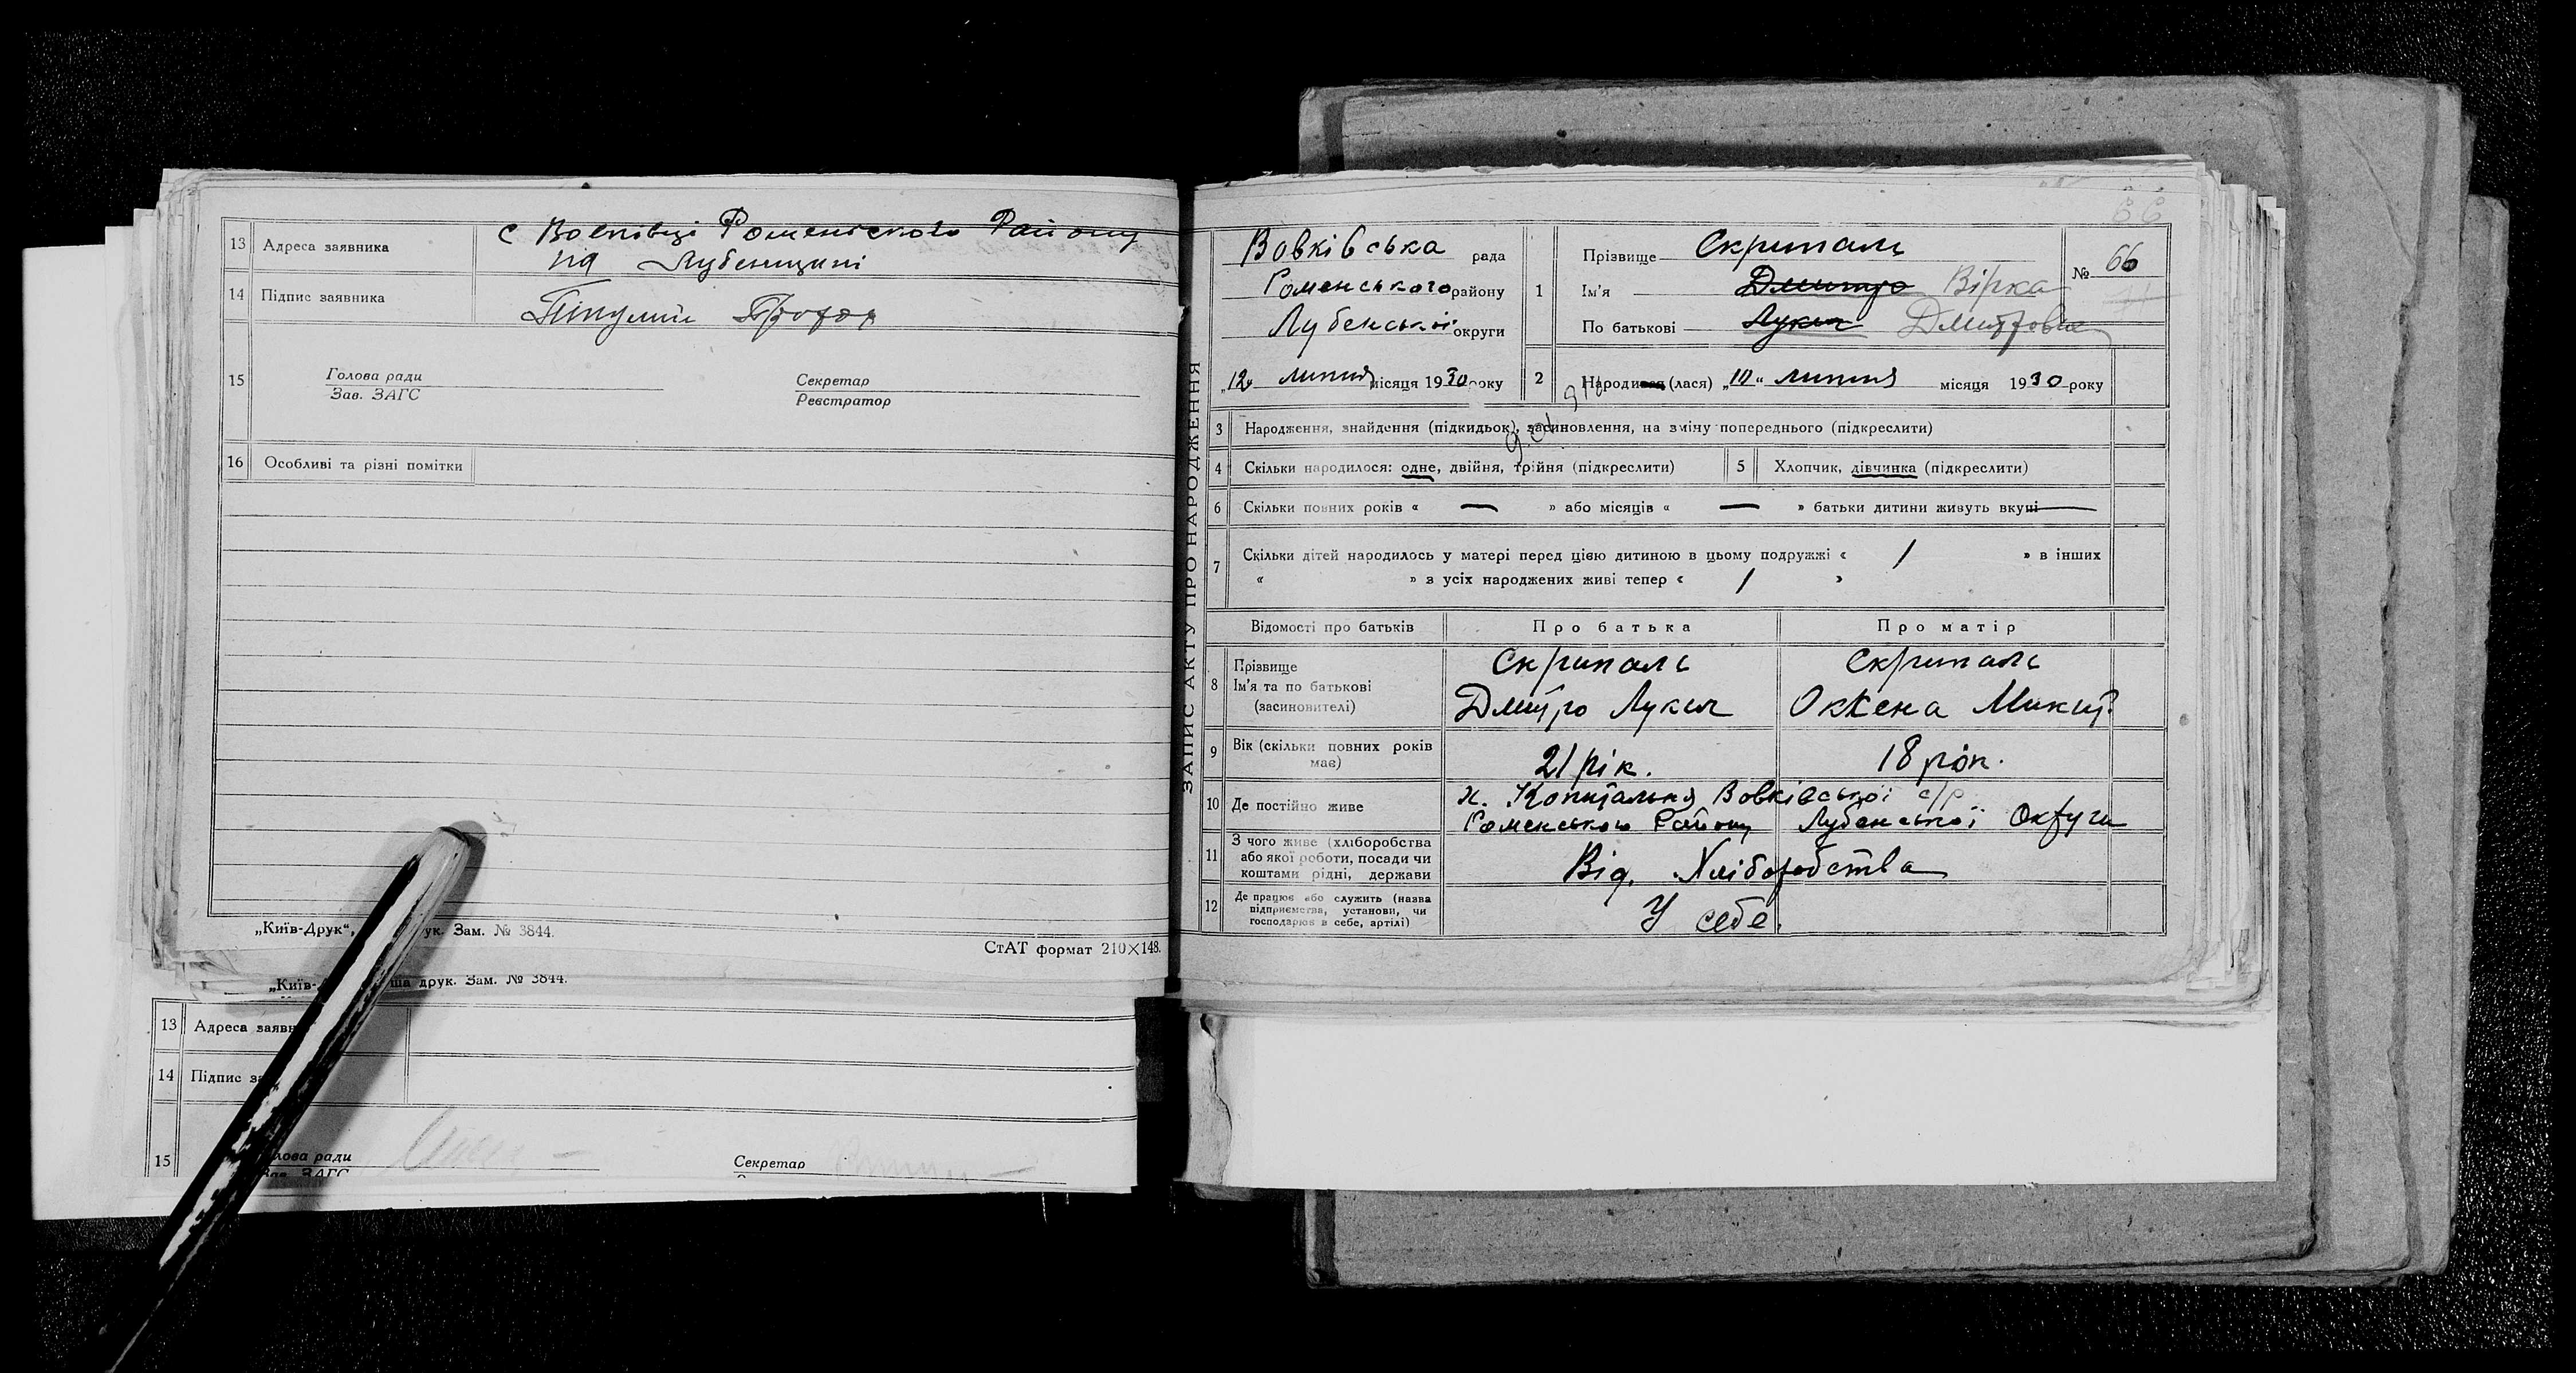 13 Адреса заявника с Вовківці Роменського Району
на Лубенщині
14 Підпис заявника
15 Голова ради Секретар
Зав. ЗАГС Реєстратор
16 Особливі та різні помітки
„Київ-Друк“, ук. Зам. № 3844.
СтАТ формат 210×148.
„Київ- ша друк. Зам. № 3844.
13 Адреса заявн
14 Підпис за
15 лова ради Секретар
Зав. ЗАГС
ЗАПИС АКТУ ПРО НАРОДЖЕННЯ
66
Вовківська рада
Роменського району
Лубенської округи
„12„ липня місяця 1930 року
1 Прізвище Скрипаль
Ім'я Дмитро Вірка
По батькові Лукич Дмитровна
№ 66
2 Народився (лася) „10“ липня місяця 1930 року
3 Народження, знайдення (підкидьок), засиновлення, на зміну попереднього (підкреслити)
4 Скільки народилося: одне, двійня, трійня (підкреслити) 5 Хлопчик, дівчинка (підкреслити)
6 Скільки повних років « — » або місяців « — » батьки дитини живуть вкупі —
7 Скільки дітей народилось у матері перед цією дитиною в цьому подружжі « / » в інших
« » з усіх народжених живі тепер « / »
Відомості про батьків Про батька Про матір
8 Прізвище Скрипаль Скрипаль
Ім'я та по батькові Дмитро Лукич Оксена Микит.
(засиновителі)
9 Вік (скільки повних років має) 21 рік. 18 рок.
10 Де постійно живе х. Копитальня Вовківської с/р
Роменського Району Лубенської Округи
11 З чого живе (хліборобства
або якої роботи, посади чи
коштами рідні, держави Від. Хліборобства
12 Де працює або служить (назва
підприємства, установи, чи
господарює в себе, артілі) У себе.